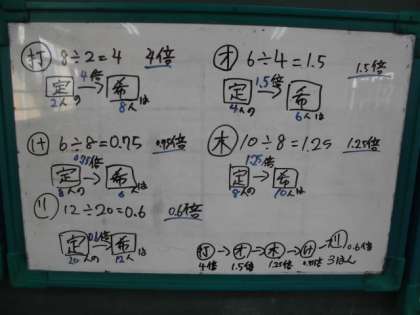 打 8÷2=4 4倍
4倍
定→希
2人の 8人は
才 6÷4=1.5 1.5倍
1.5倍
定→希
4人の 6人は
け 6÷8=0.75 0.75倍
0.75倍
定→希
8人の 6人は
木 10÷8=1.25 1.25倍
1.25倍
定→希
8人の 10人は
リ 12÷20=0.6 0.6倍
0.6倍
定→希
20人の 12人は
打→才→木→け→リ 0.6倍
4倍 1.5倍 1.25倍 0.75倍